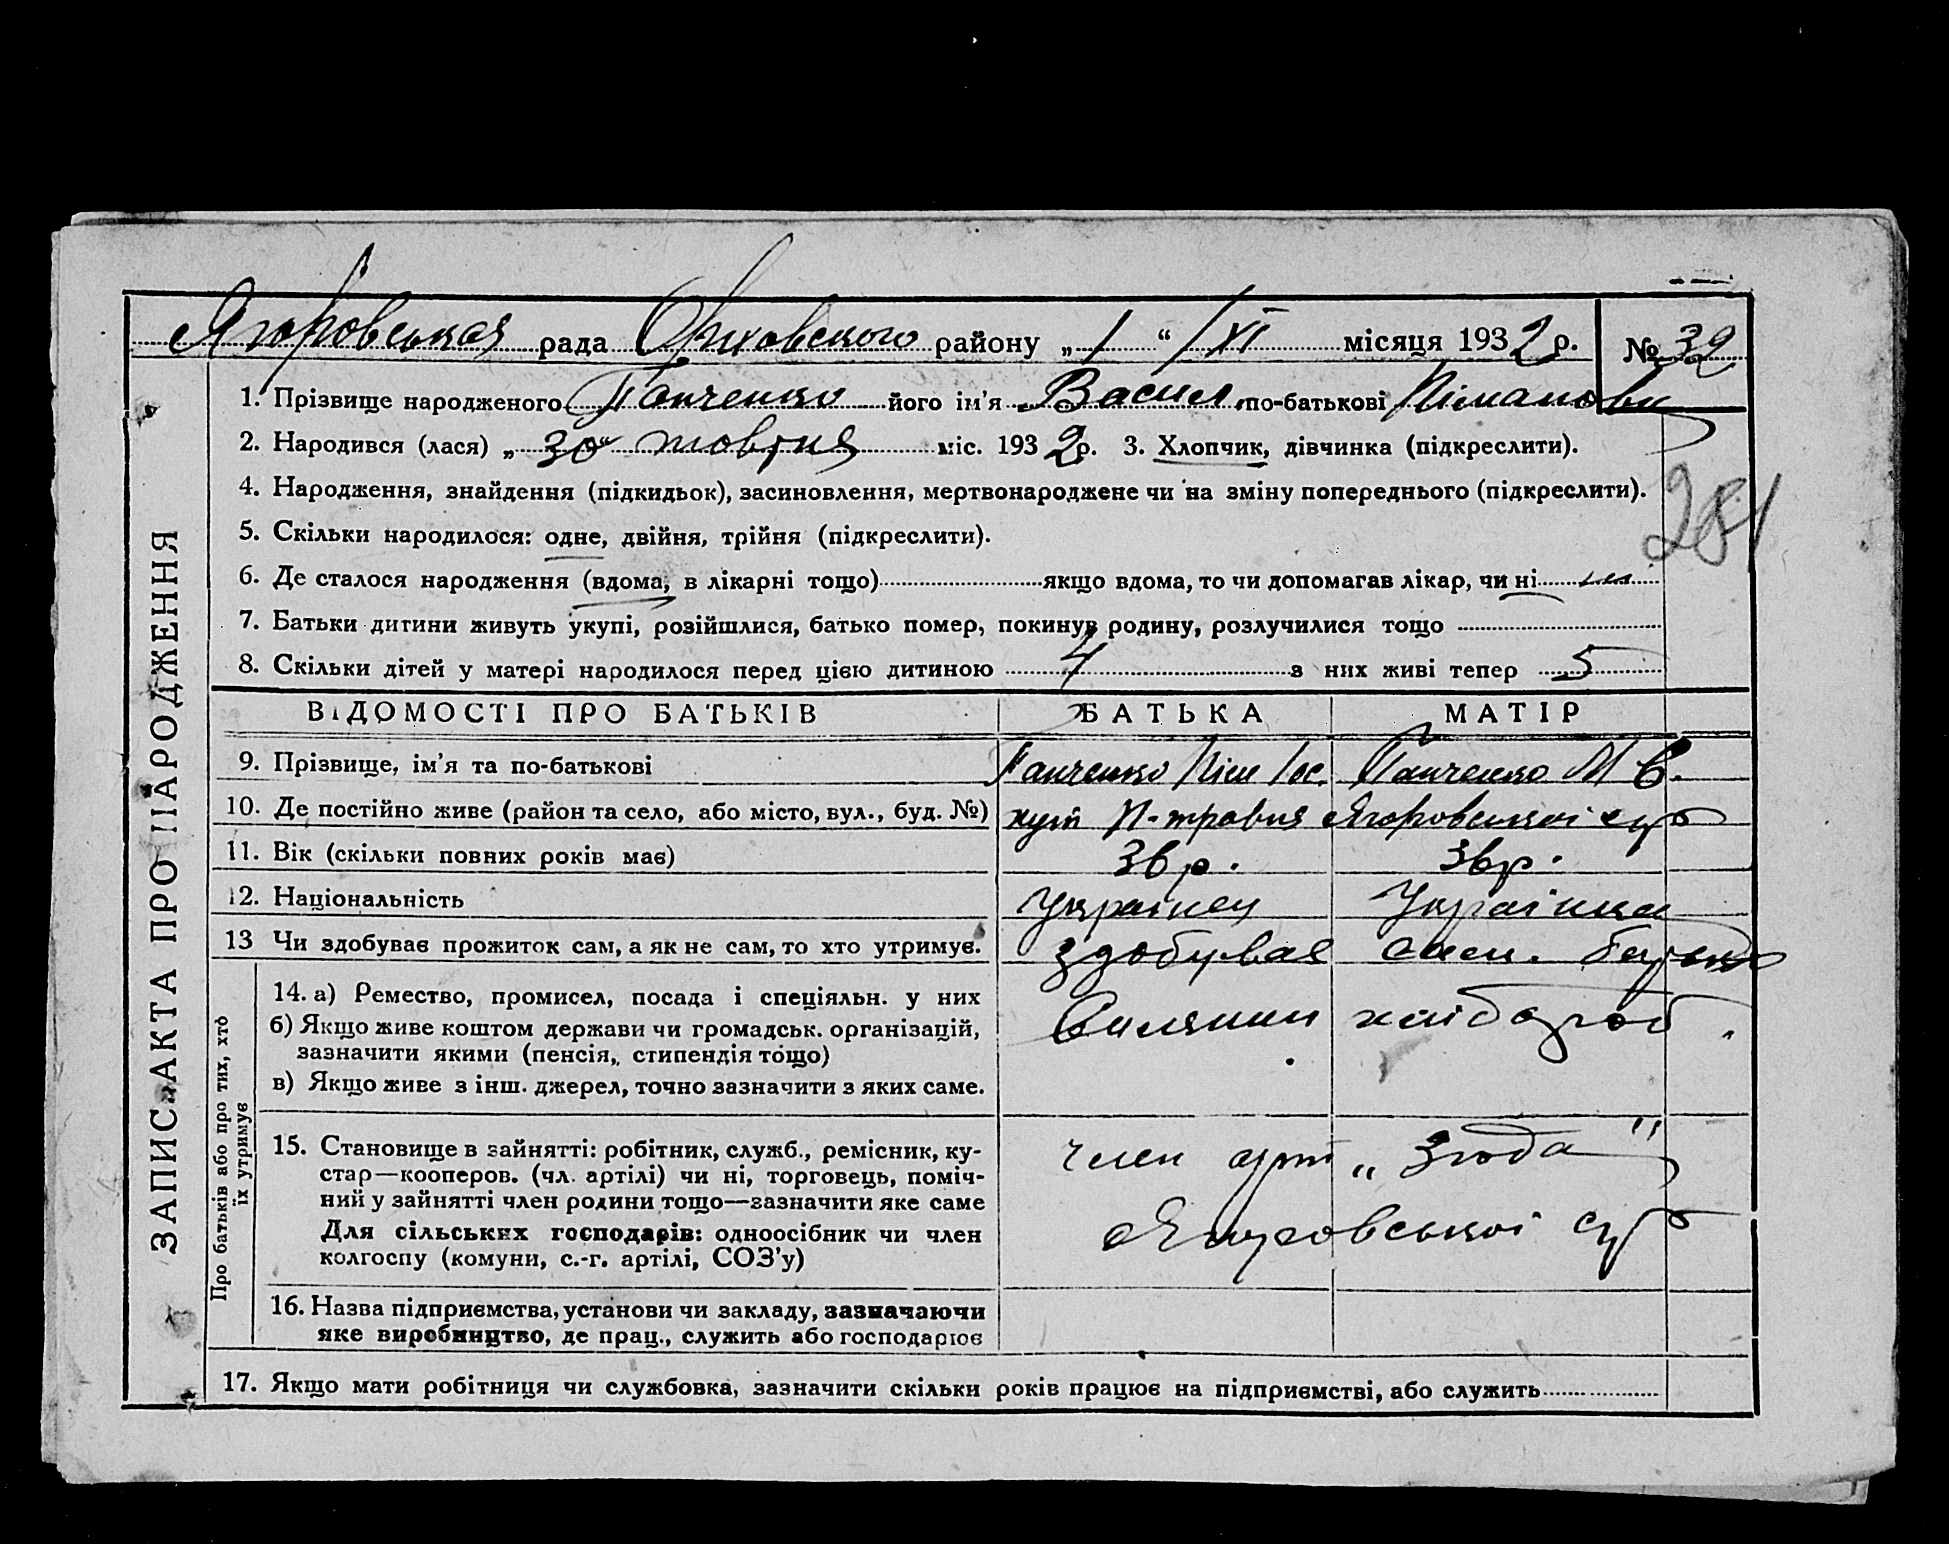 Ягоровськая рада Оріховського району „1“ /XI місяця 1932 р. № 32
1. Прізвище народженого Панченко його ім'я Васил по-батькові
2. Народився (лася) „30“ жовтня міс. 1932 р. 3. Хлопчик, дівчинка (підкреслити).
281
4. Народження, знайдення (підкидьок), засиновлення, мертвонароджене чи на зміну попереднього (підкреслити).
5. Скільки народилося: одне, двійня, трійня (підкреслити).
6. Де сталося народження (вдома, в лікарні тощо) якщо вдома, то чи допомагав лікар, чи ні
7. Батьки дитини живуть укупі, розійшлися, батько помер, покинув родину, розлучилися тощо
8. Скільки дітей у матері народилося перед цією дитиною 4 з них живі тепер 5
ВІДОМОСТІ ПРО БАТЬКІВ БАТЬКА МАТІР
9. Прізвище, ім'я та по-батькові Панченко Панченко М
10. Де постійно живе (район та село, або місто, вул., буд. №) хут П-травня Ягоровської с/р
11. Вік (скільки повних років має) 36 р. 36 р.
12. Національність Українец Українка
13 Чи здобуває прожиток сам, а як не сам, то хто утримує. здобувая батько
14. а) Ремество, промисел, посада і спеціяльн. у них
б) Якщо живе коштом держави чи громадськ. організацій,
зазначити якими (пенсія, стипендія тощо)
в) Якщо живе з інш. джерел, точно зазначити з яких саме.
Силянин хлібороб
15. Становище в зайнятті: робітник, служб., ремісник, ку-
стар—кооперов. (чл. артілі) чи ні, торговець, поміч-
ний у зайнятті член родини тощо—зазначити яке саме
Для сільських господарів: одноосібник чи член
колгоспу (комуни, с.-г. артілі, СОЗ'у)
член арт „Згода"
Ягоровської с/р
16. Назва підприємства, установи чи закладу, зазначаючи
яке виробництво, де прац., служить або господарює
17. Якщо мати робітниця чи службовка, зазначити скільки років працює на підприємстві, або служить
ЗАПИС АКТА ПРО НАРОДЖЕННЯ
Про батьків або про тих, хто
їх утримує